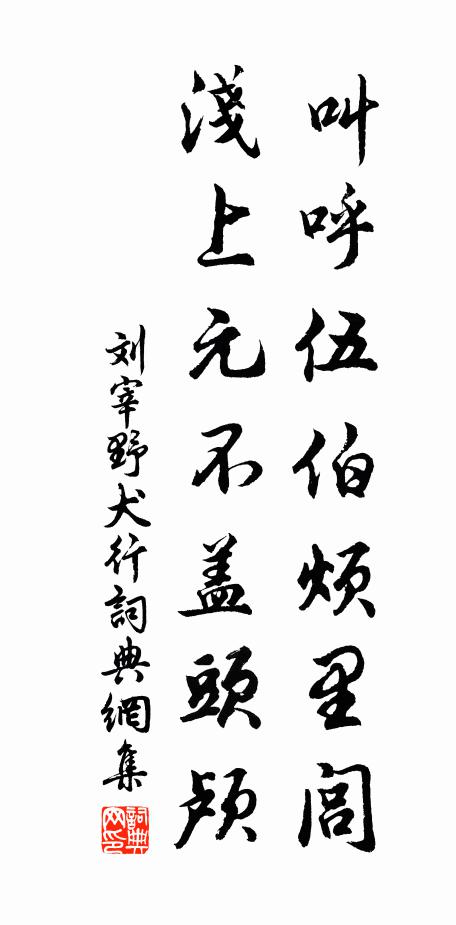 叫呼伍伯烦里闾
淺上元不盖頭颅
刘宰野犬行詞典網集
詞典
网印